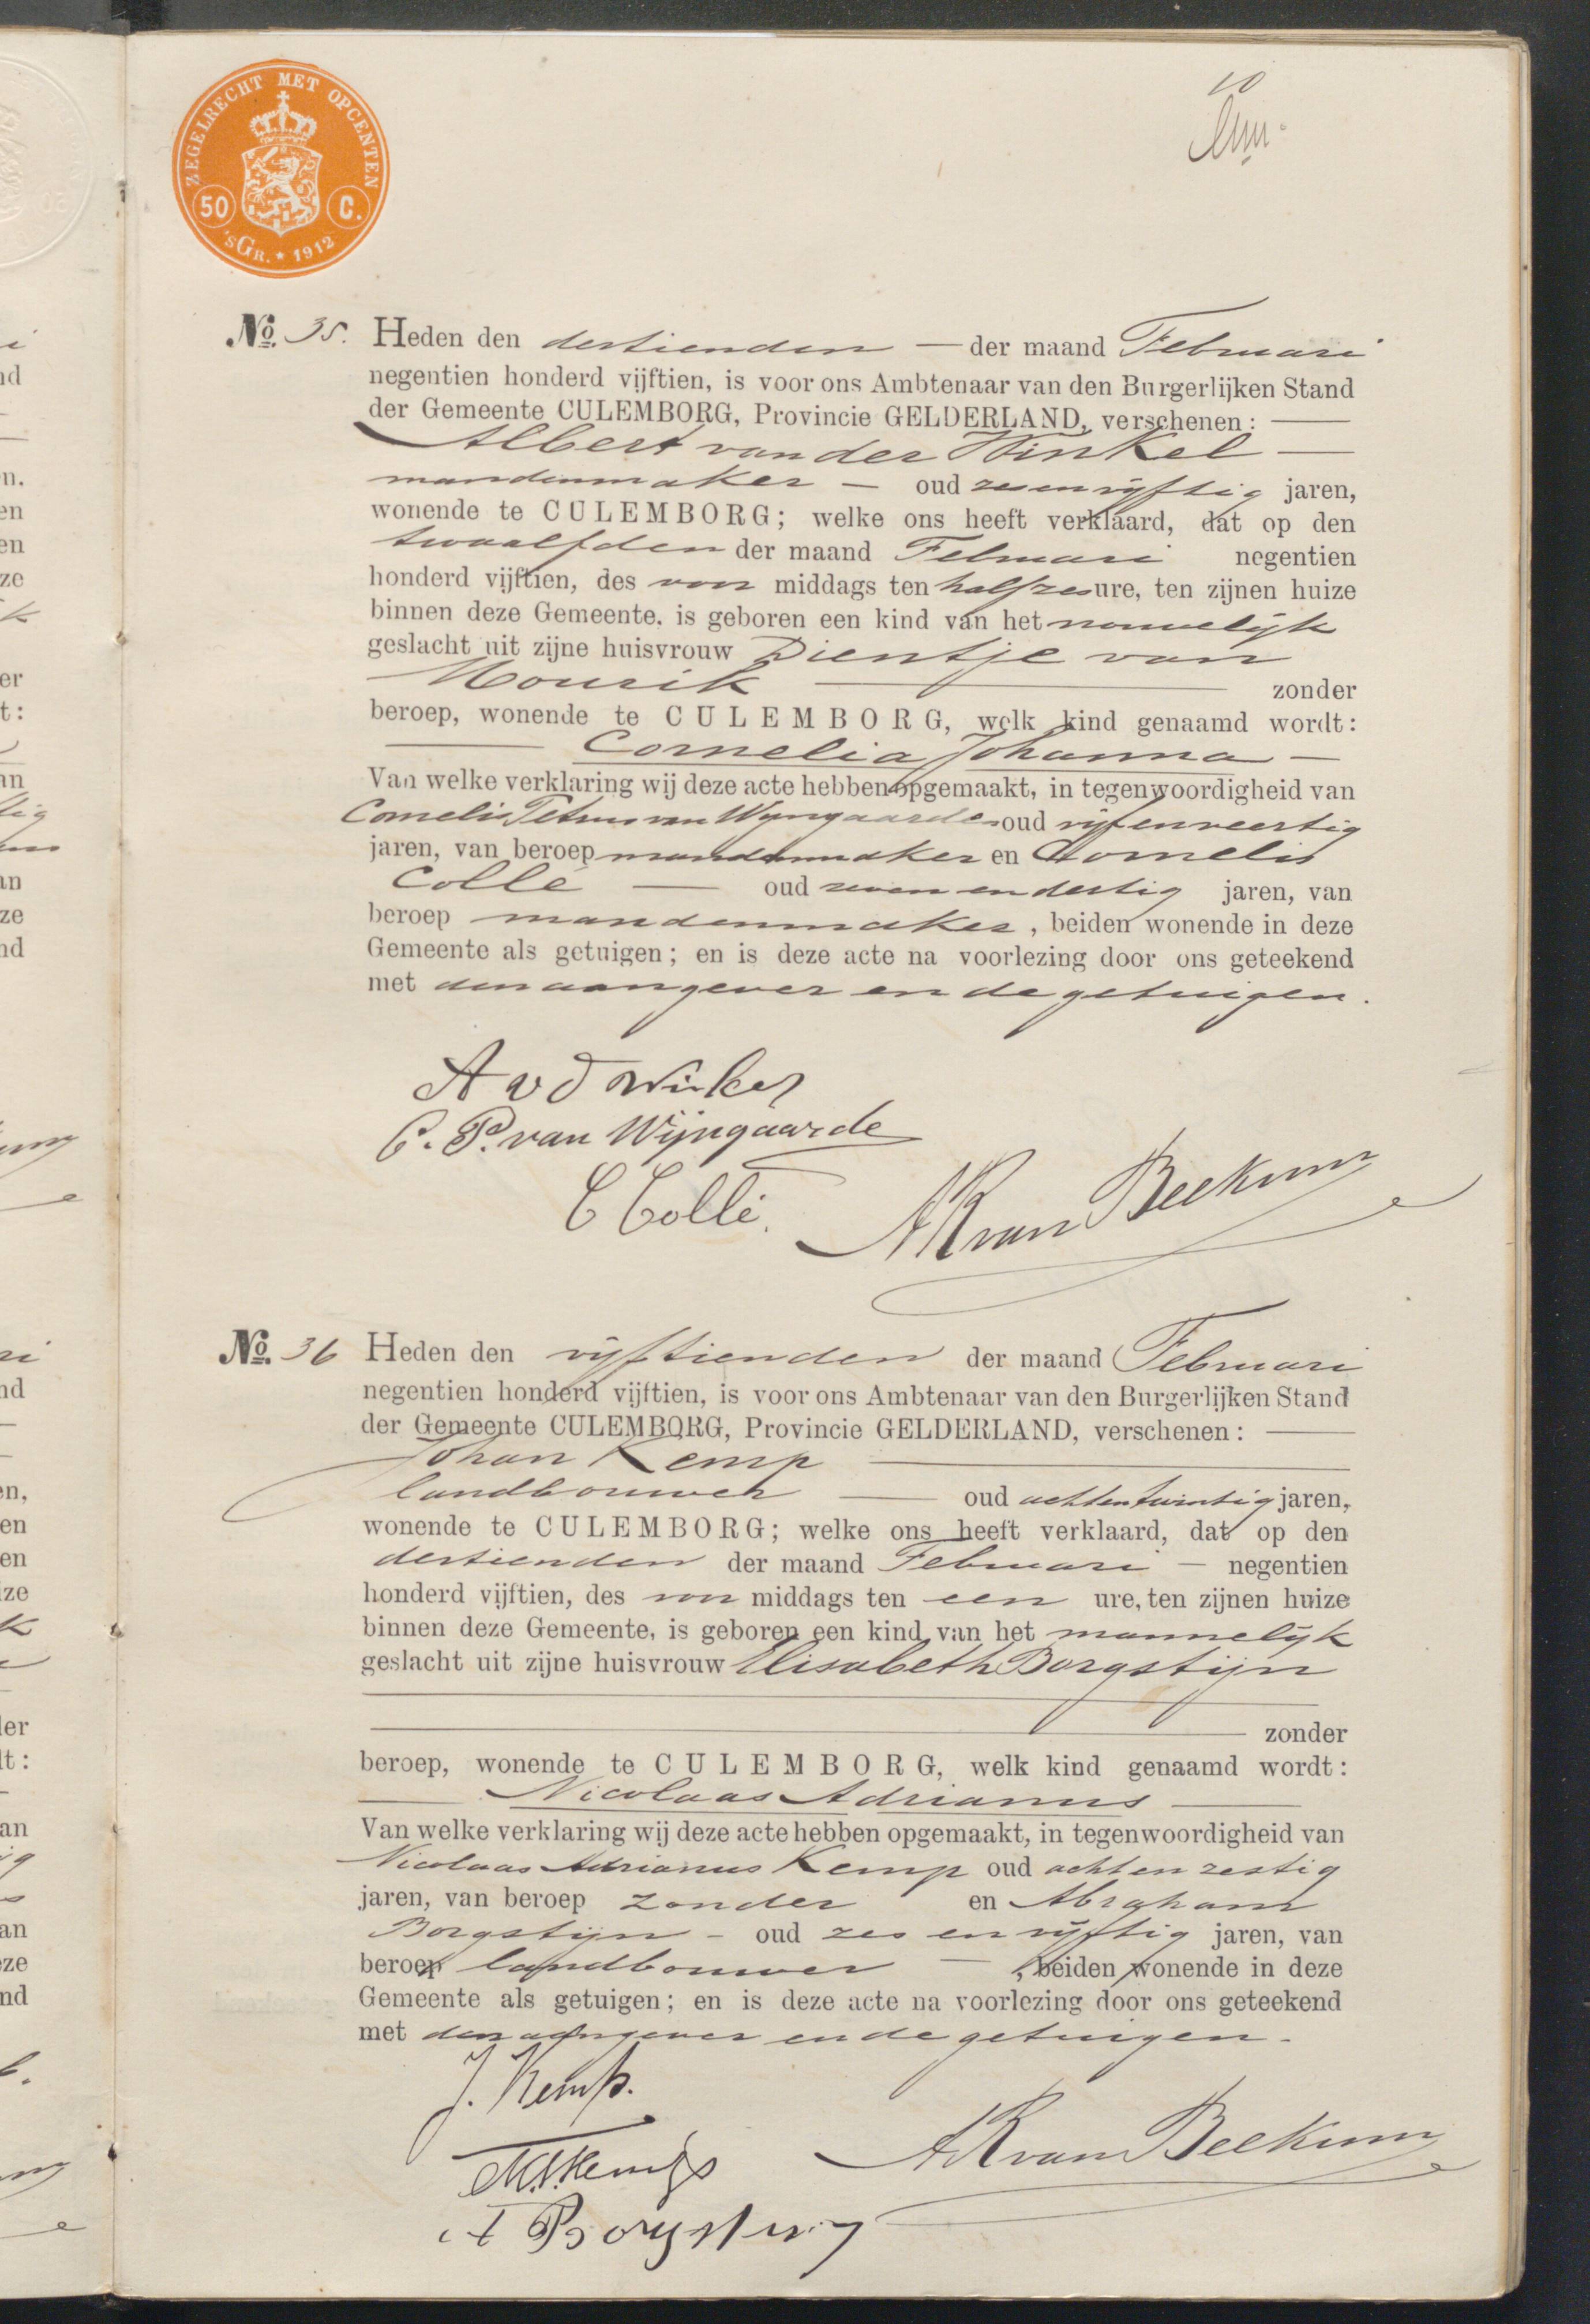 ZEGELRECHT MET OPCENTEN
50 C.
'SGR. * 1912
10
No. 35. Heden den dertienden der maand Februari
negentien honderd vijftien, is voor ons Ambtenaar van den Burgerlijken Stand
der Gemeente CULEMBORG, Provincie GELDERLAND, verschenen:
Albert van der Winkel
mandenmaker oud zesenvijftig jaren,
wonende te CULEMBORG; welke ons heeft verklaard, dat op den
twaalfden der maand Februari negentien
honderd vijftien, des voor middags ten half zes ure, ten zijnen huize
binnen deze Gemeente, is geboren een kind van het vrouwelijk
geslacht uit zijne huisvrouw Dientje van
Mourik zonder
beroep, wonende te CULEMBORG, welk kind genaamd wordt:
Cornelia Johanna
Van welke verklaring wij deze acte hebben opgemaakt, in tegenwoordigheid van
Cornelis Petrus van Wijngaarde oud vijfenveertig
jaren, van beroep mandenmaker en Cornelis
Collé oud zeven en dertig jaren, van
beroep mandenmaker, beiden wonende in deze
Gemeente als getuigen; en is deze acte na voorlezing door ons geteekend
met den aangever en de getuigen.
A v d Winkel
C. P. van Wijngaarde
C Collé.
AK van Beekum
No. 36 Heden den vijftienden der maand Februari
negentien honderd vijftien, is voor ons Ambtenaar van den Burgerlijken Stand
der Gemeente CULEMBORG, Provincie GELDERLAND, verschenen:
Johan Kemp
landbouwer oud achtentwintig jaren,
wonende te CULEMBORG; welke ons heeft verklaard, dat op den
dertienden der maand Februari - negentien
honderd vijftien, des voor middags ten een ure, ten zijnen huize
binnen deze Gemeente, is geboren een kind van het mannelijk
geslacht uit zijne huisvrouw Elisabeth Borgstijn
zonder
beroep, wonende te CULEMBORG, welk kind genaamd wordt:
Nicolaas Adrianus
Van welke verklaring wij deze acte hebben opgemaakt, in tegenwoordigheid van
Nicolaas Adrianus Kemp oud acht en zestig
jaren, van beroep zonder en Abraham
Borgstijn - oud zes en vijftig jaren, van
beroep landbouwer, beiden wonende in deze
Gemeente als getuigen; en is deze acte na voorlezing door ons geteekend
met den aangever en de getuigen.
J. Kemp.
N. A. Kemp
AK van Beekum
A Borgstijn